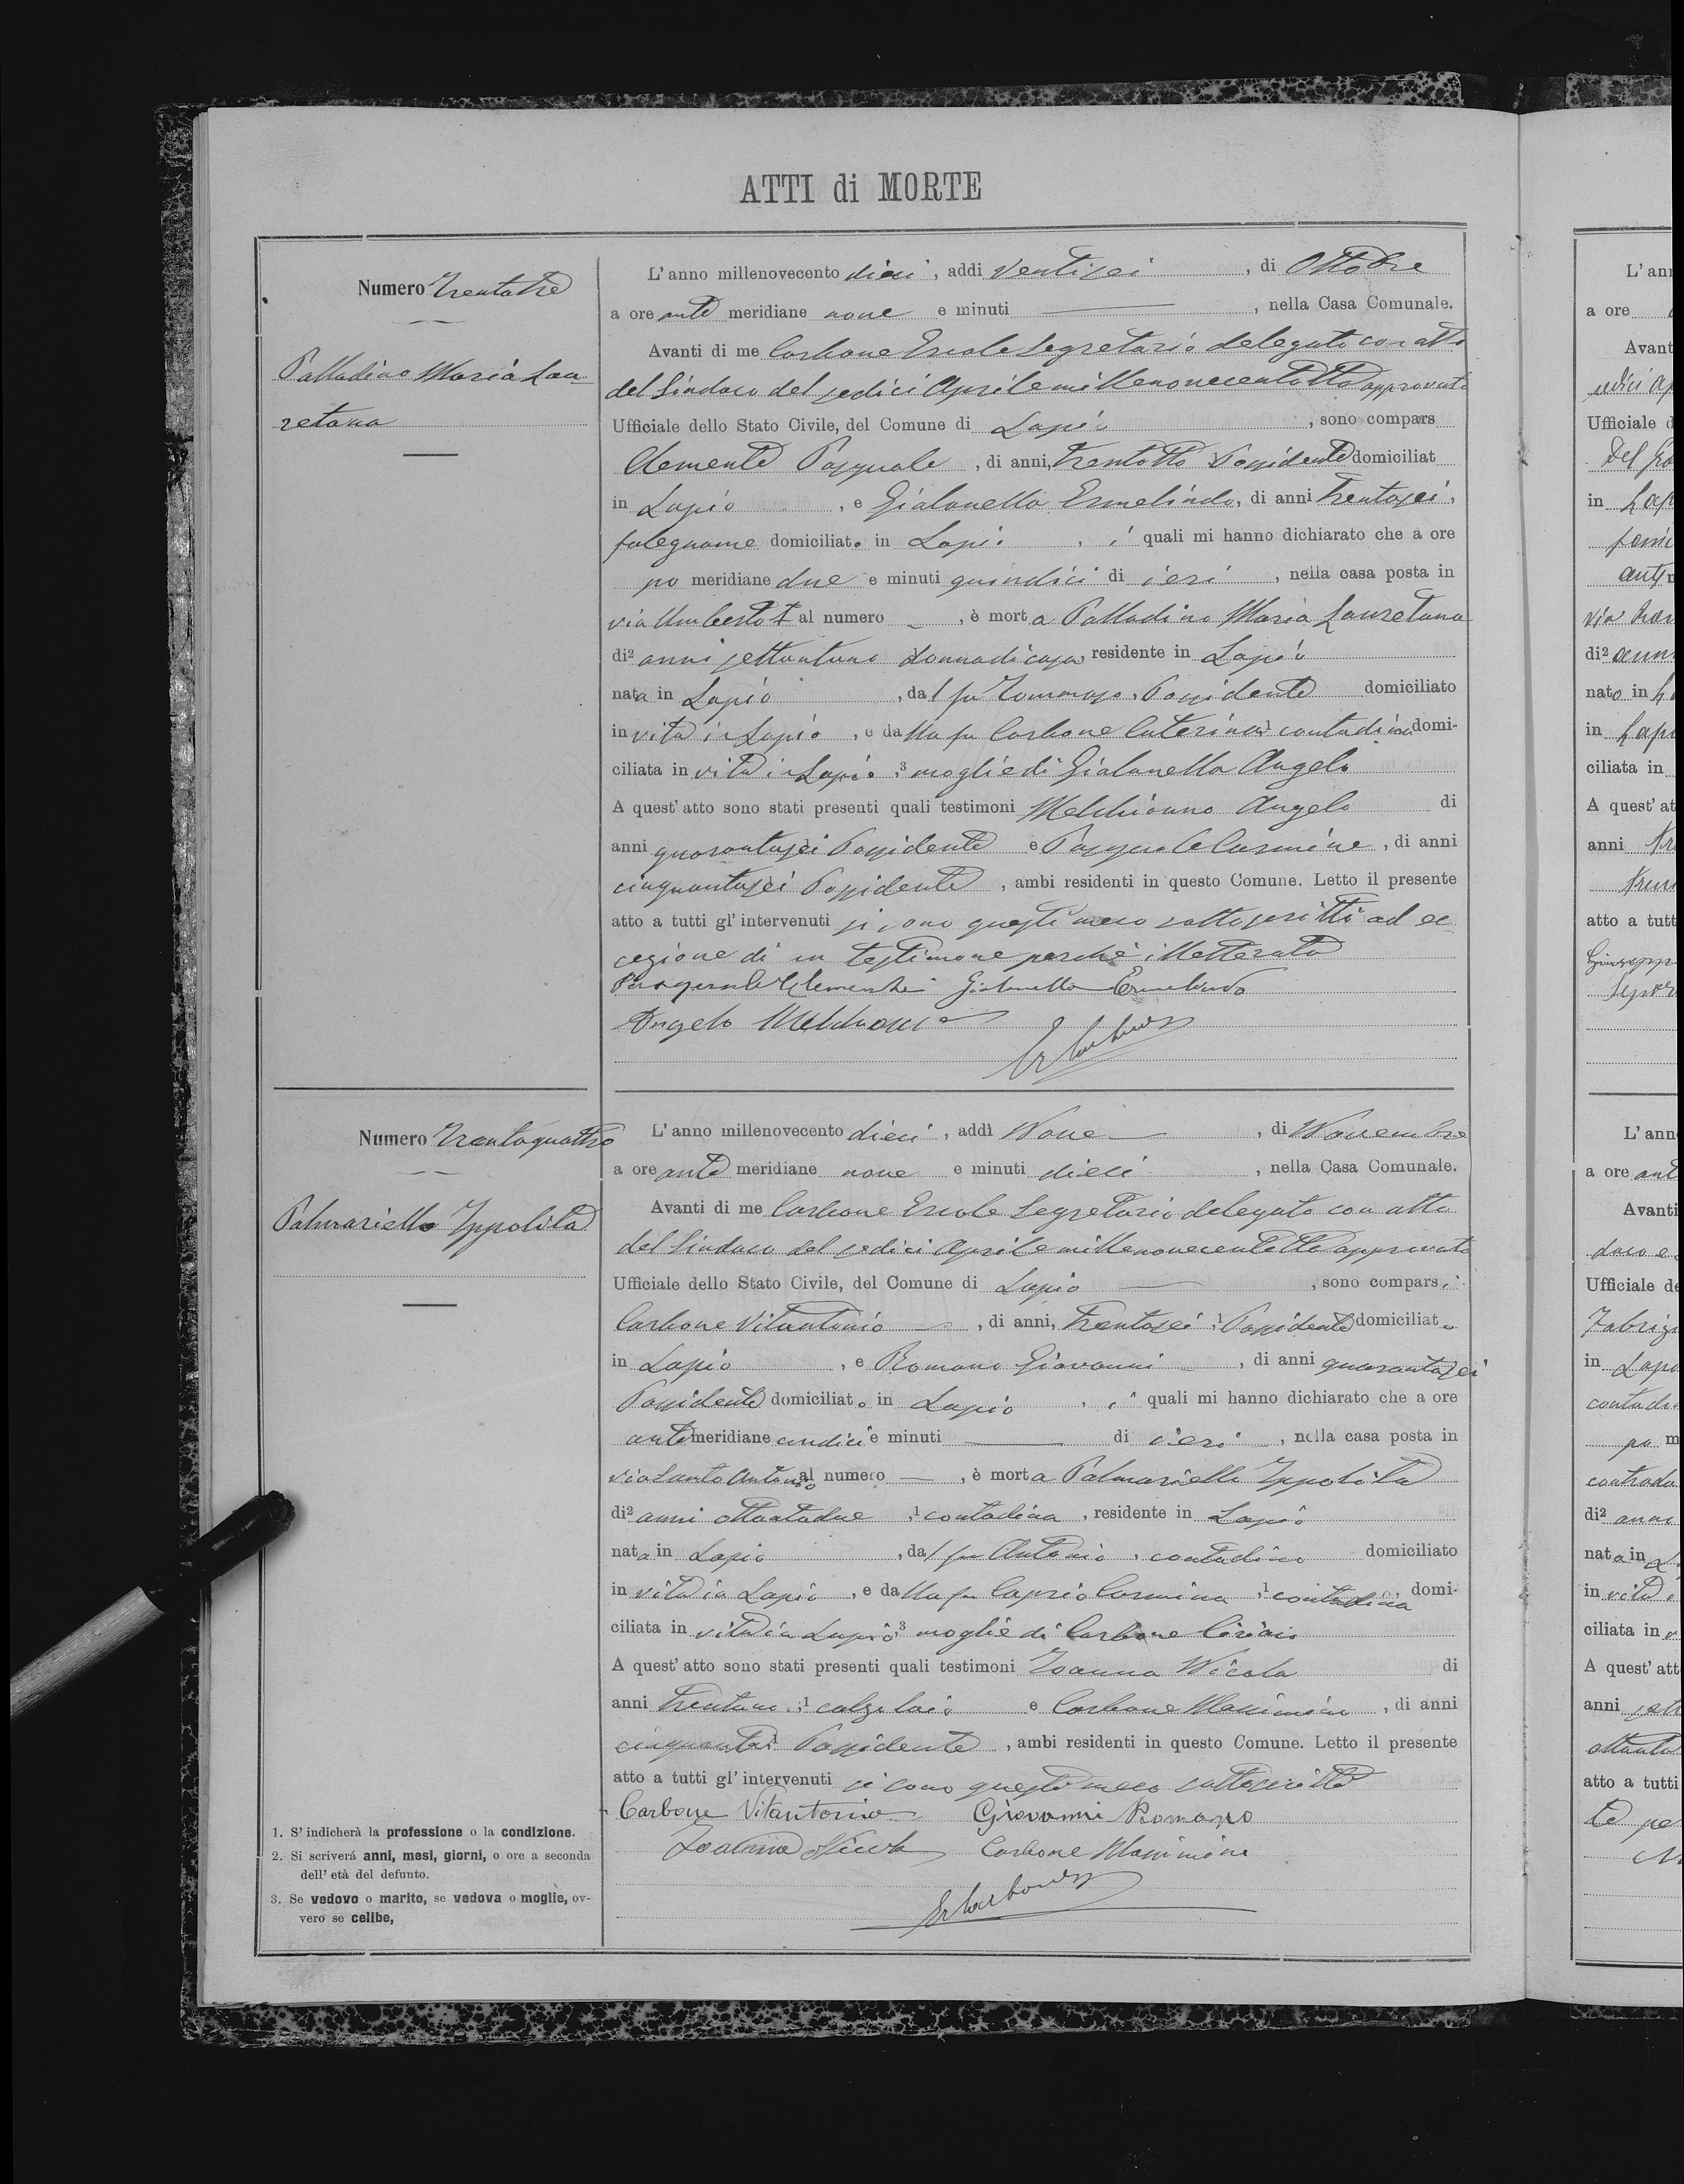 ATTI di MORTE
Numero Trentatre
Palladino Maria Lau-
retana
L'anno millenovecento dieci, addi ventisei, di Ottobre
a ore ante meridiane nove e minuti —, nella Casa Comunale.
Avanti di me Carbone Ercole Segretario delegato con atto
del Sindaco del sedici Aprile millenovecentotto approvato
Ufficiale dello Stato Civile, del Comune di Lapio, sono compars
Clemente Pasquale, di anni, trentotto Possidente domiciliat
in Lapio, e Gialanella Ermelindo, di anni trentasei,
falegname domiciliato in Lapio, i quali mi hanno dichiarato che a ore
po meridiane due e minuti quindici di ieri, nella casa posta in
via Umberto I al numero —, è morta Palladino Maria Lauretana
di² anni settantuno donna di casa, residente in Lapio
nata in Lapio, dal fu Tommaso, Possidente domiciliato
in vita in Lapio, e dalla fu Carbone Caterina ¹ contadina domi-
ciliata in vita in Lapio, ³ moglie di Gialanella Angelo
A quest'atto sono stati presenti quali testimoni Melchionna Angelo di
anni quarantasei Possidente e Pasquale Carmine, di anni
cinquantasei Possidente, ambi residenti in questo Comune. Letto il presente
atto a tutti gl'intervenuti si sono questi meco sottoscritti ad ec
cezione di un testimone perchè illetterato
Pasquale Clemente Gialanella Ermelindo
Angelo Melchionna
Er Carbone
Numero Trentaquattro
Palmariello Ippolita
L'anno millenovecento dieci, addì Nove —, di Novembre
a ore ante meridiane nove e minuti dieci, nella Casa Comunale.
Avanti di me Carbone Ercole Segretario delegato con atto
del Sindaco del sedici Aprile millenovecentotto approvato
Ufficiale dello Stato Civile, del Comune di Lapio —, sono comparsi
Carbone Vitantonio —, di anni, trentasei, ¹ Possidente domiciliato
in Lapio, e Romano Giovanni —, di anni quarantasei
Possidente domiciliato in Lapio, i quali mi hanno dichiarato che a ore
ante meridiane undici e minuti — di ieri, nella casa posta in
via Santo Antonio al numero —, è morta Palmariello Ippolita
di² anni ottantadue, ¹ contadina, residente in Lapio
nata in Lapio, dal fu Antonio, contadino domiciliato
in vita in Lapio, e dalla fu Caprio Carmina, ¹ contadina, domi-
ciliata in vita in Lapio, ³ moglie di Carbone Ciriaco
A quest'atto sono stati presenti quali testimoni Ioanna Nicola di
anni trentuno, ¹ calzolaio e Carbone Massimino, di anni
cinquanta ¹ Possidente, ambi residenti in questo Comune. Letto il presente
atto a tutti gl'intervenuti si sono questi meco sottoscritti
Carbone Vitantonio Giovanni Romano
Ioanna Nicola Carbone Massimino
Er Carbone
1. S'indicherà la professione o la condizione.
2. Si scriverá anni, mesi, giorni, o ore a seconda
dell'età del defunto.
3. Se vedovo o marito, se vedova o moglie, ov-
vero se celibe,
L'an
a ore
Avant
sedici ap
Ufficiale d
in Lap
via
di² anni
nato in
in Lapi
ciliata in
A quest'at
anni
atto a tutt
L'ann
a ore ant
Avanti
Ufficiale de
Fabrizi
in Lapio
contadi
po m
contrada
di² anni
nata in
in vita
ciliata in
A quest'att
anni
ottanta
atto a tutti